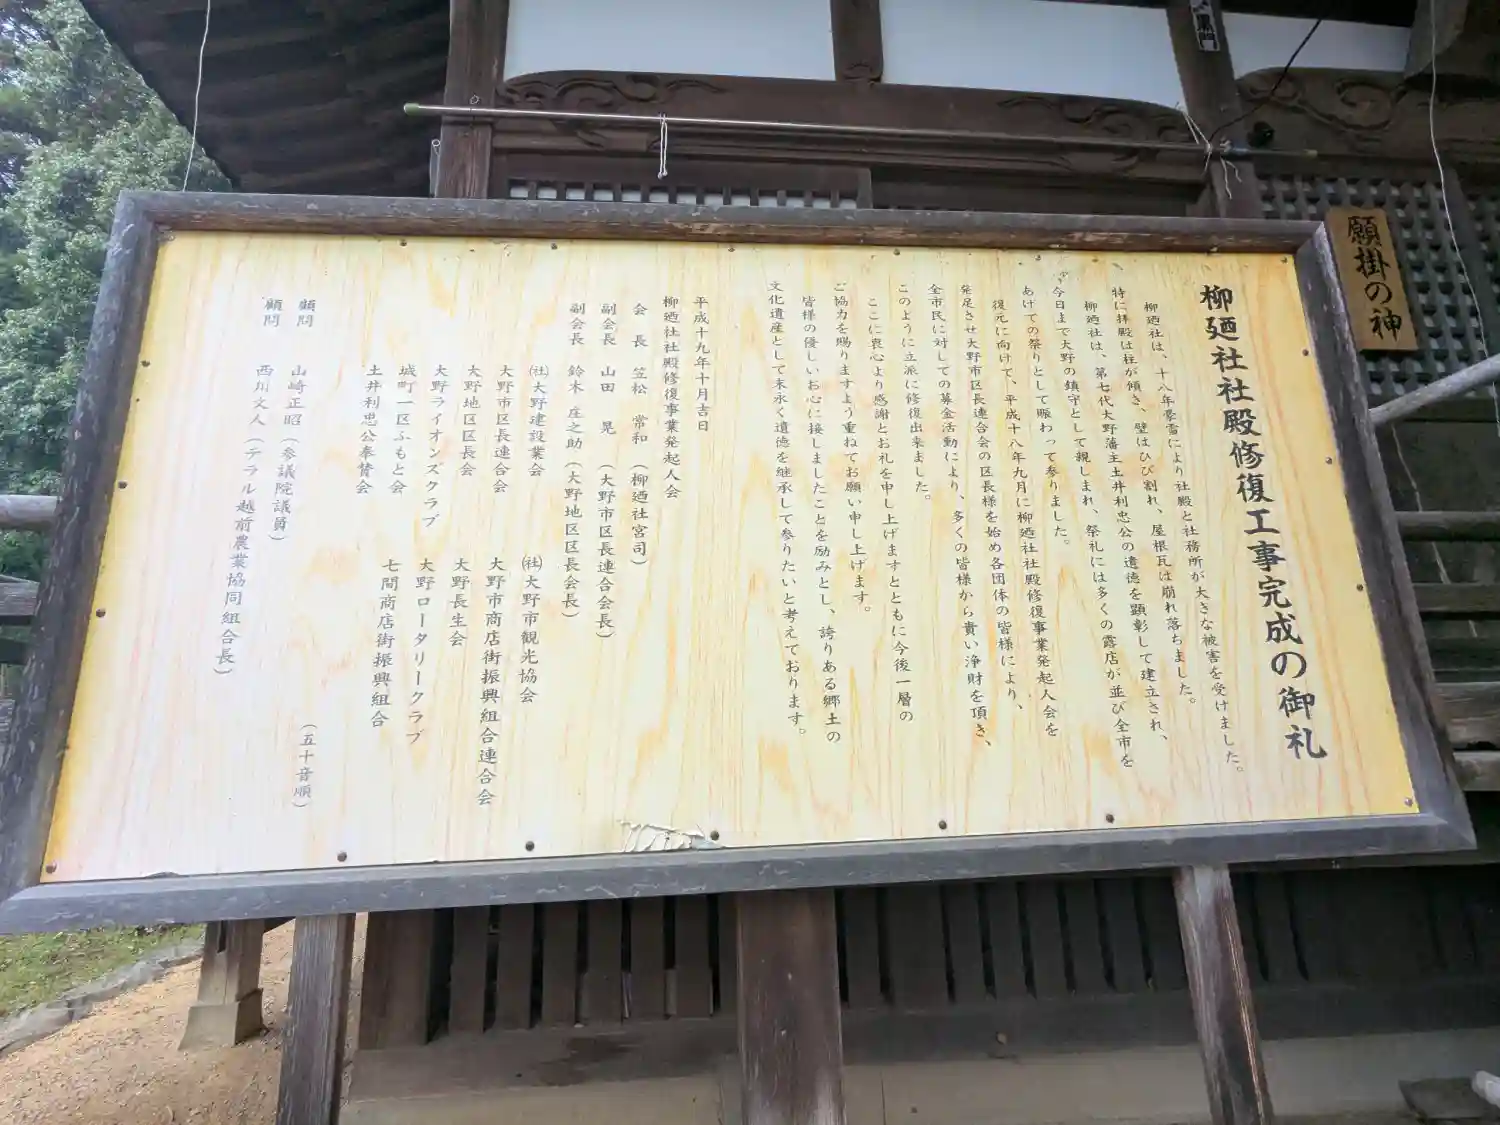 願掛の神
柳廼社社殿修復工事完成の御礼
柳廼社は、十八年豪雪により社殿と社務所が大きな被害を受けました。
特に拝殿は柱が傾き、壁はひび割れ、屋根瓦は崩れ落ちました。
柳廼社は、第七代大野藩主土井利忠公の遺徳を顕彰して建立され、
今日まで大野の鎮守として親しまれ、祭礼には多くの露店が並び全市を
あげての祭りとして賑わって参りました。
復元に向けて、平成十八年九月に柳廼社社殿修復事業発起人会を
発足させ大野市区長連合会の区長様を始め各団体の皆様により、
全市民に対しての募金活動により、多くの皆様から貴い浄財を頂き、
このように立派に修復出来ました。
ここに衷心より感謝とお礼を申し上げますとともに今後一層の
ご協力を賜りますよう重ねてお願い申し上げます。
皆様の優しいお心に接しましたことを励みとし、誇りある郷土の
文化遺産として末永く遺徳を継承して参りたいと考えております。
平成十九年十月吉日
柳廼社社殿修復事業発起人会
会 長 笠松 常和 （柳廼社宮司）
副会長 山田 晃 （大野市区長連合会長）
副会長 鈴木 庄之助 （大野地区区長会長）
㈳大野建設業会 ㈳大野市観光協会
大野市区長連合会 大野市商店街振興組合連合会
大野地区区長会 大野長生会
大野ライオンズクラブ 大野ロータリークラブ
城町一区ふもと会 七間商店街振興組合
土井利忠公奉賛会
（五十音順）
顧問 山崎正昭（参議院議員）
顧問 西川文人（テラル越前農業協同組合長）